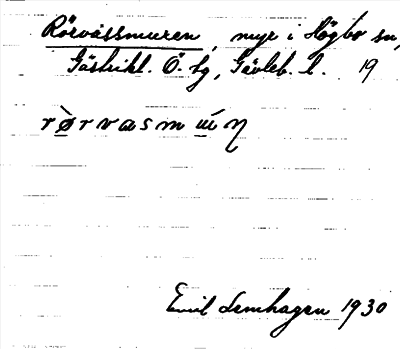 Rörvassmuren, myr i Högbo sn,
Gästrikl. Ö. tg, Gävleb. l. 19
rø̀rvasmuı́ŋ
Emil Lemhagen 1930